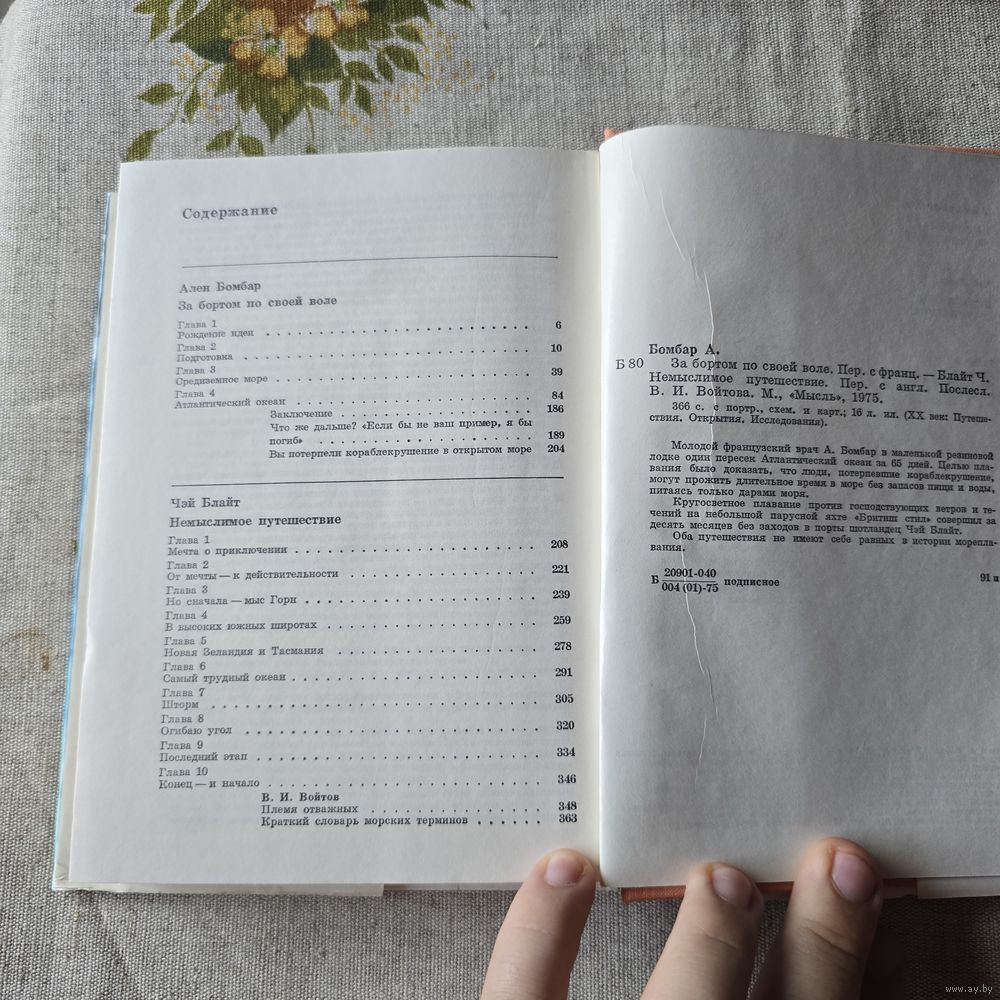 Содержание
Ален Бомбар
За бортом по своей воле
Глава 1
Рождение идеи . . . . . . . . . . . . . . . . . . . . . . . . 6
Глава 2
Подготовка . . . . . . . . . . . . . . . . . . . . . . . . 10
Глава 3
Средиземное море . . . . . . . . . . . . . . . . . . . . . . . . 39
Глава 4
Атлантический океан . . . . . . . . . . . . . . . . . . . . . . 84
Заключение . . . . . . . . . . . . . . . . . 186
Что же дальше? «Если бы не ваш пример, я бы
погиб» . . . . . . . . . . . . . . . . . . . 189
Вы потерпели кораблекрушение в открытом море 204
Чэй Блайт
Немыслимое путешествие
Глава 1
Мечта о приключении . . . . . . . . . . . . . . . . . . . . . 208
Глава 2
От мечты — к действительности . . . . . . . . . . . . . . . . . 221
Глава 3
Но сначала — мыс Горн . . . . . . . . . . . . . . . . . . . . 239
Глава 4
В высоких южных широтах . . . . . . . . . . . . . . . . . . . 259
Глава 5
Новая Зеландия и Тасмания . . . . . . . . . . . . . . . . . . 278
Глава 6
Самый трудный океан . . . . . . . . . . . . . . . . . . . . . 291
Глава 7
Шторм . . . . . . . . . . . . . . . . . . . . . . . . . . . 305
Глава 8
Огибаю угол . . . . . . . . . . . . . . . . . . . . . . . . . 320
Глава 9
Последний этап . . . . . . . . . . . . . . . . . . . . . . . . 334
Глава 10
Конец — и начало . . . . . . . . . . . . . . . . . . . . . . . 346
В. И. Войтов
Племя отважных . . . . . . . . . . . . . . . 348
Краткий словарь морских терминов . . . . . . 363
Бомбар А.
Б 80 За бортом по своей воле. Пер. с франц. — Блайт Ч.
Немыслимое путешествие. Пер. с англ. Послесл.
В. И. Войтова. М., «Мысль», 1975.
366 с. с портр., схем. и карт.; 16 л. ил. (XX век: Путеше-
ствия. Открытия. Исследования).
Молодой французский врач А. Бомбар в маленькой резиновой
лодке один пересек Атлантический океан за 65 дней. Целью пла-
вания было доказать, что люди, потерпевшие кораблекрушение,
могут прожить длительное время в море без запасов пищи и воды,
питаясь только дарами моря.
Кругосветное плавание против господствующих ветров и те-
чений на небольшой парусной яхте «Бритиш стил» совершил за
десять месяцев без заходов в порты шотландец Чэй Блайт.
Оба путешествия не имеют себе равных в истории морепла-
вания.
20901-040
Б подписное 91 п
004 (01)-75
www.ay.by